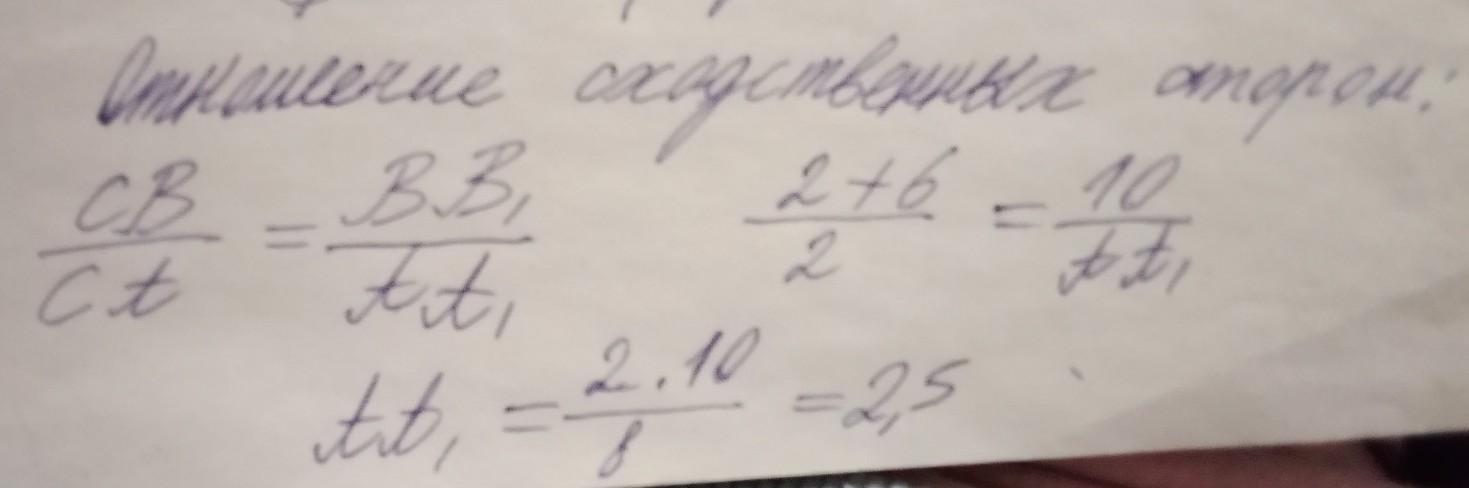 Отношение сходственных сторон:
CB/Ct = BB₁/tt₁ (2+6)/2 = 10/tt₁
tt₁ = (2·10)/8 = 2,5